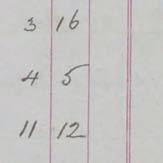 3 16
4 5
11 12